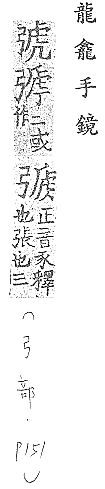 龍龕手鏡
二或作㢮正音豕釋也張也三(弓部.P151)